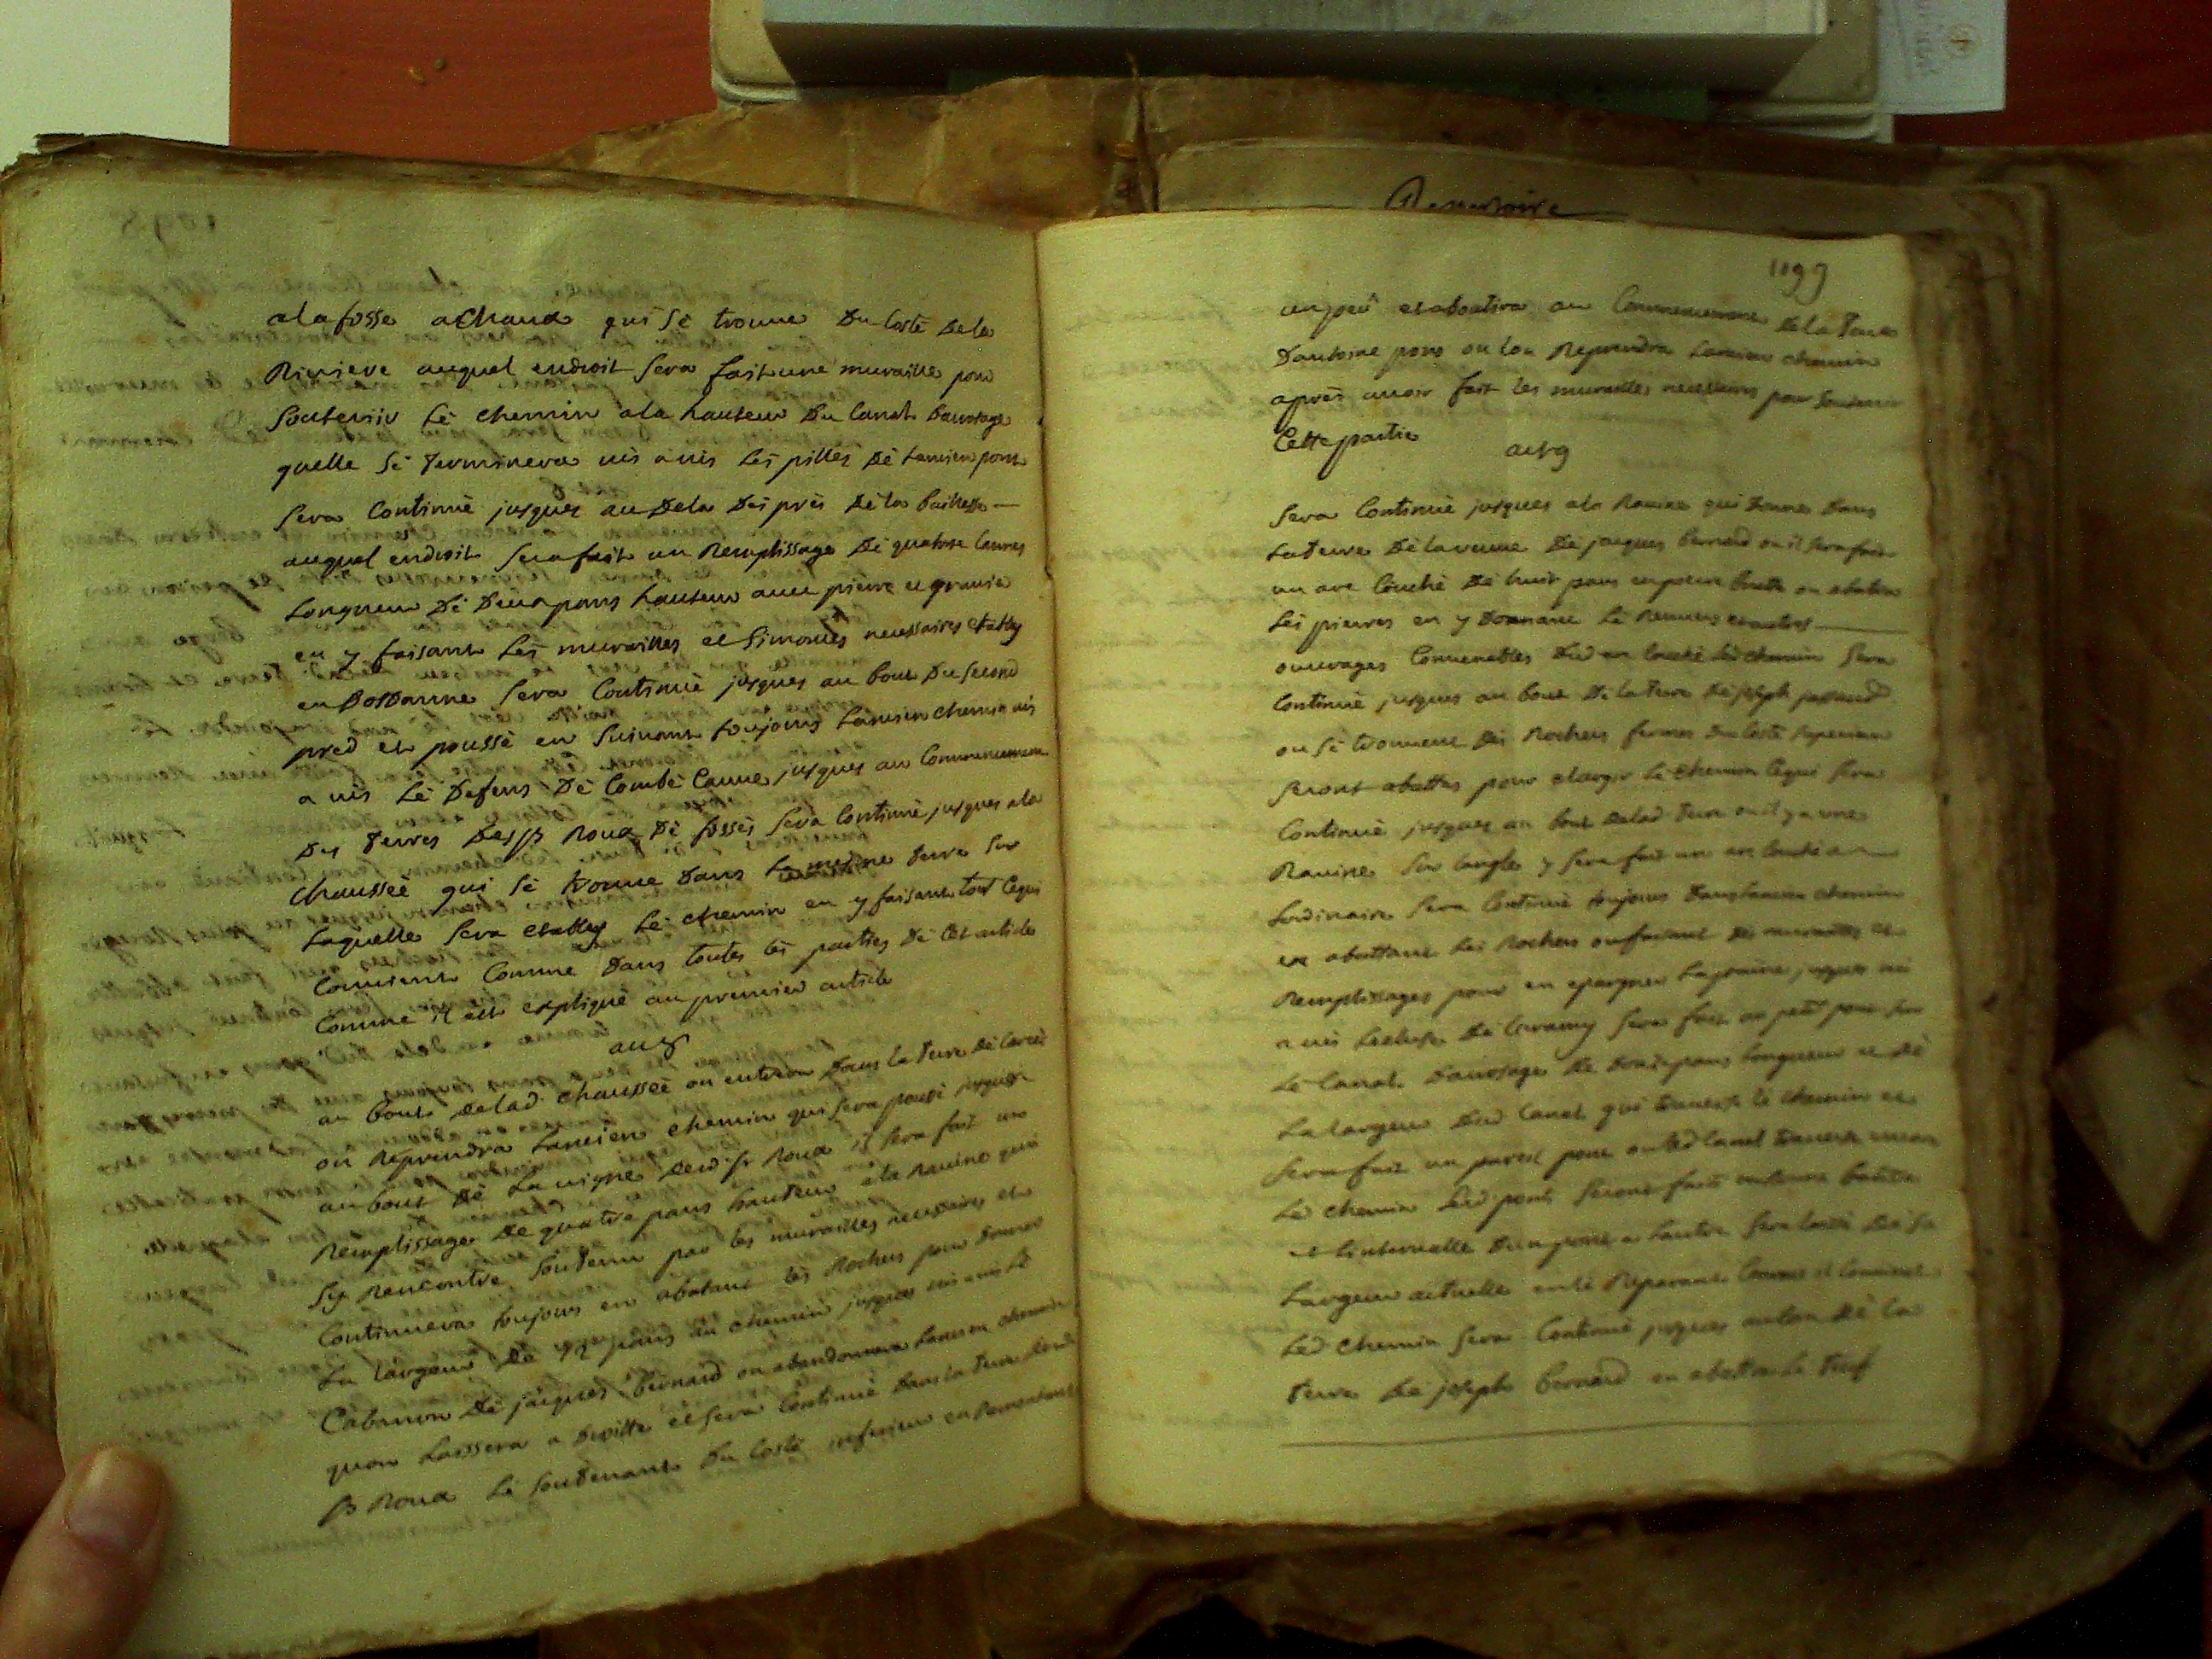 a la fosse a Chaux qui Sè trouue Du Costé De la
Riuiere auquel endroit Sera fait une muraille pour
Soutenir Lè chemin a la hauteur Du Canal Darrosage
quelle Sè terminera uis a uis Lès pilles Dè Lancien pont
Sera Continuè jusques au Dela Des près Dè la
auquel endroit Sera fait un Remplissage Dè quatorse Cannes
Longueur Dè Deux pans hauteur auec pierre et grauier
en y faisant Les murailles et necessaires etably
en Sera Continuè jusques au bout Du Second
pred et poussè en Suiuant toujours Lancien chemin uis
a uis Lè Defens Dè Combè Canne jusques au Commencement
Des terres Des Srs Roux Dè fossès Sera Continuè jusques a la
Chausseè qui Sè trouue Dans La mesme terre Sur
Laquelle Sera etably Lè chemin en y faisant tout Cequi
Conuient Comme Dans toutes Lès parties Dè Cet article
Comme il est expliquè au premier article
au 8
au bout De lad Chausseè on entrera Dans la terre Dè
on Reprendra Lancien chemin qui Sera poussé jusques
au bout Dè La uigne Dud Sr Roux il Sera fait un
Remplissage De quatre pans hauteur a la Rauine qui
Sy Rencontre Soutenu par les murailles necessaires et
Continuera toujours en abatant Lès Rochers pour Donner
La Largeur De pans au chemin jusques uis a uis Lè
Cabanon Dè jacques Bernard on abandonnera Lancien chemin
quon Laissera a Droitte et Sera Continuè Dans la terre Dud
Sr Roux Lè Soutenant Du Costé inferieur en Remontant
Repertoire
1099
un peu et aboutira au Commencement De la Terre
Dantoine pons ou Lon Reprendra Lancien chemin
après auoir fait les murailles necessaires pour Soutenir
Cette partie
au 9
Sera Continuè jusques a la Rauine qui Donne Dans
La terre Dè la veuue Dè jacques Bernard ou il Sera fait
un arc Couchè Dè huit pans on abatra
Lès pierres en y Donnant Lè et autres
ouurages Conuenables Dud arc Couchè Led chemin Sera
Continuè jusques au bout Dè La terre Dè joseph
ou Sè trouuent Dès Rochers fermes Du Costé Superieur
Seront abattus pour elargir Lè chemin Cequi Sera
Continuè jusques au bout De lad terre ou il y a une
Rauine Sur Langle y Sera fait un arc Couchè a
Lordinaire Sera Continuè toujours Dans Lancien chemin
en abattant Lès Rochers ou faisant Dès murailles et
Remplissages pour en epargner La peine jusques uis
a uis Lecluse Dè Sera fait un petit pont Sur
Lè Canal Darrosage De pans Longueur et Dè
La Largeur Dud Canal qui trauerse Lè chemin et
Sera fait un pareil pont ou led Canal trauerse encor
Lè chemin Led ponts Seront faits
et Linterualle Dun pont a Lautre Sera Laissè Dè Sa
Largeur actuelle en Lè Reparant Comme il Conuient
Led chemin Sera Continuè jusques au Dè La
terre Dè joseph Bernard en abattra Le tuf